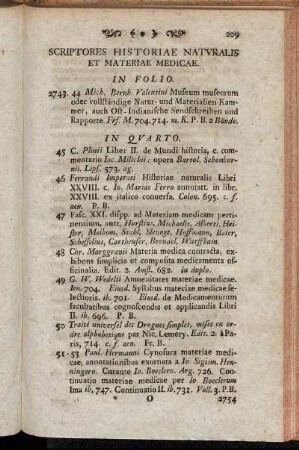 209
SCRIPTORES HISTORIAE NATVRALIS
ET MATERIAE MEDICAE.
IN FOLIO.
2743. 44 Mich. Bernh. Valentini Museum museorum
oder vollständige Natur- und Materialien-Kam-
mer, auch Ost-Indianische Sendschreiben und
Rapporte. Frf. M. 704. 714. m. K. P. B. 2 Bände.
IN QVARTO.
45 C. Plinii Liber II. de Mundi historia, c. com-
mentario Iac. Milichii: opera Bartol. Schonbor-
nii. Lips. 573. ag.
46 Ferrandi Imperati Historiae naturalis Libri
XXVIII. c. Io. Mariae Ferro annotatt. in libr.
XXVIII. ex italico conuersa. Colon. 695. c. f.
aen. P. B.
47 Fasc. XXI. dispp. ad Materiam medicam perti-
nentium, autt. Horstius, Michaelis, Alberti, Hôf-
fter, Meibom, Stahl, Slevogt, Hoffmann, Bâier,
Scheffelius, Cartheuser, Brendel, Wurffbain.
48 Chr. Marggravii Materia medica contracta, ex-
hibens simplicia et composita medicamenta of-
ficinalia. Edit. 2. Amst. 682. in duplo.
49 G. W. Wedelii Amoenitates materiae medicae.
Ien. 704. Eiusd. Syllabus materiae medicae se-
lectioris. ib. 701. Eiusd. de Medicamentorum
facultatibus cognoscendis et applicandis Libri
II. ib. 696. P. B.
50 Traité universel des Drogues simples, mises en or-
dre alphabetique par Nic. Lemery. Edit. 2. à Pa-
ris, 714. c. f. aen. Fr. B.
51-53 Paul. Hermanni Cynosura materiae medi-
cae, annotationibus exornata a Io. Sigism. Hen-
ningero. Curante Io. Boeclero. Arg. 726. Con-
tinuatio materiae medicae per Io Boeclerum
Ima ib, 747. Continuatio II. ib. 731. Voll. 3. P. B.
* O 2754